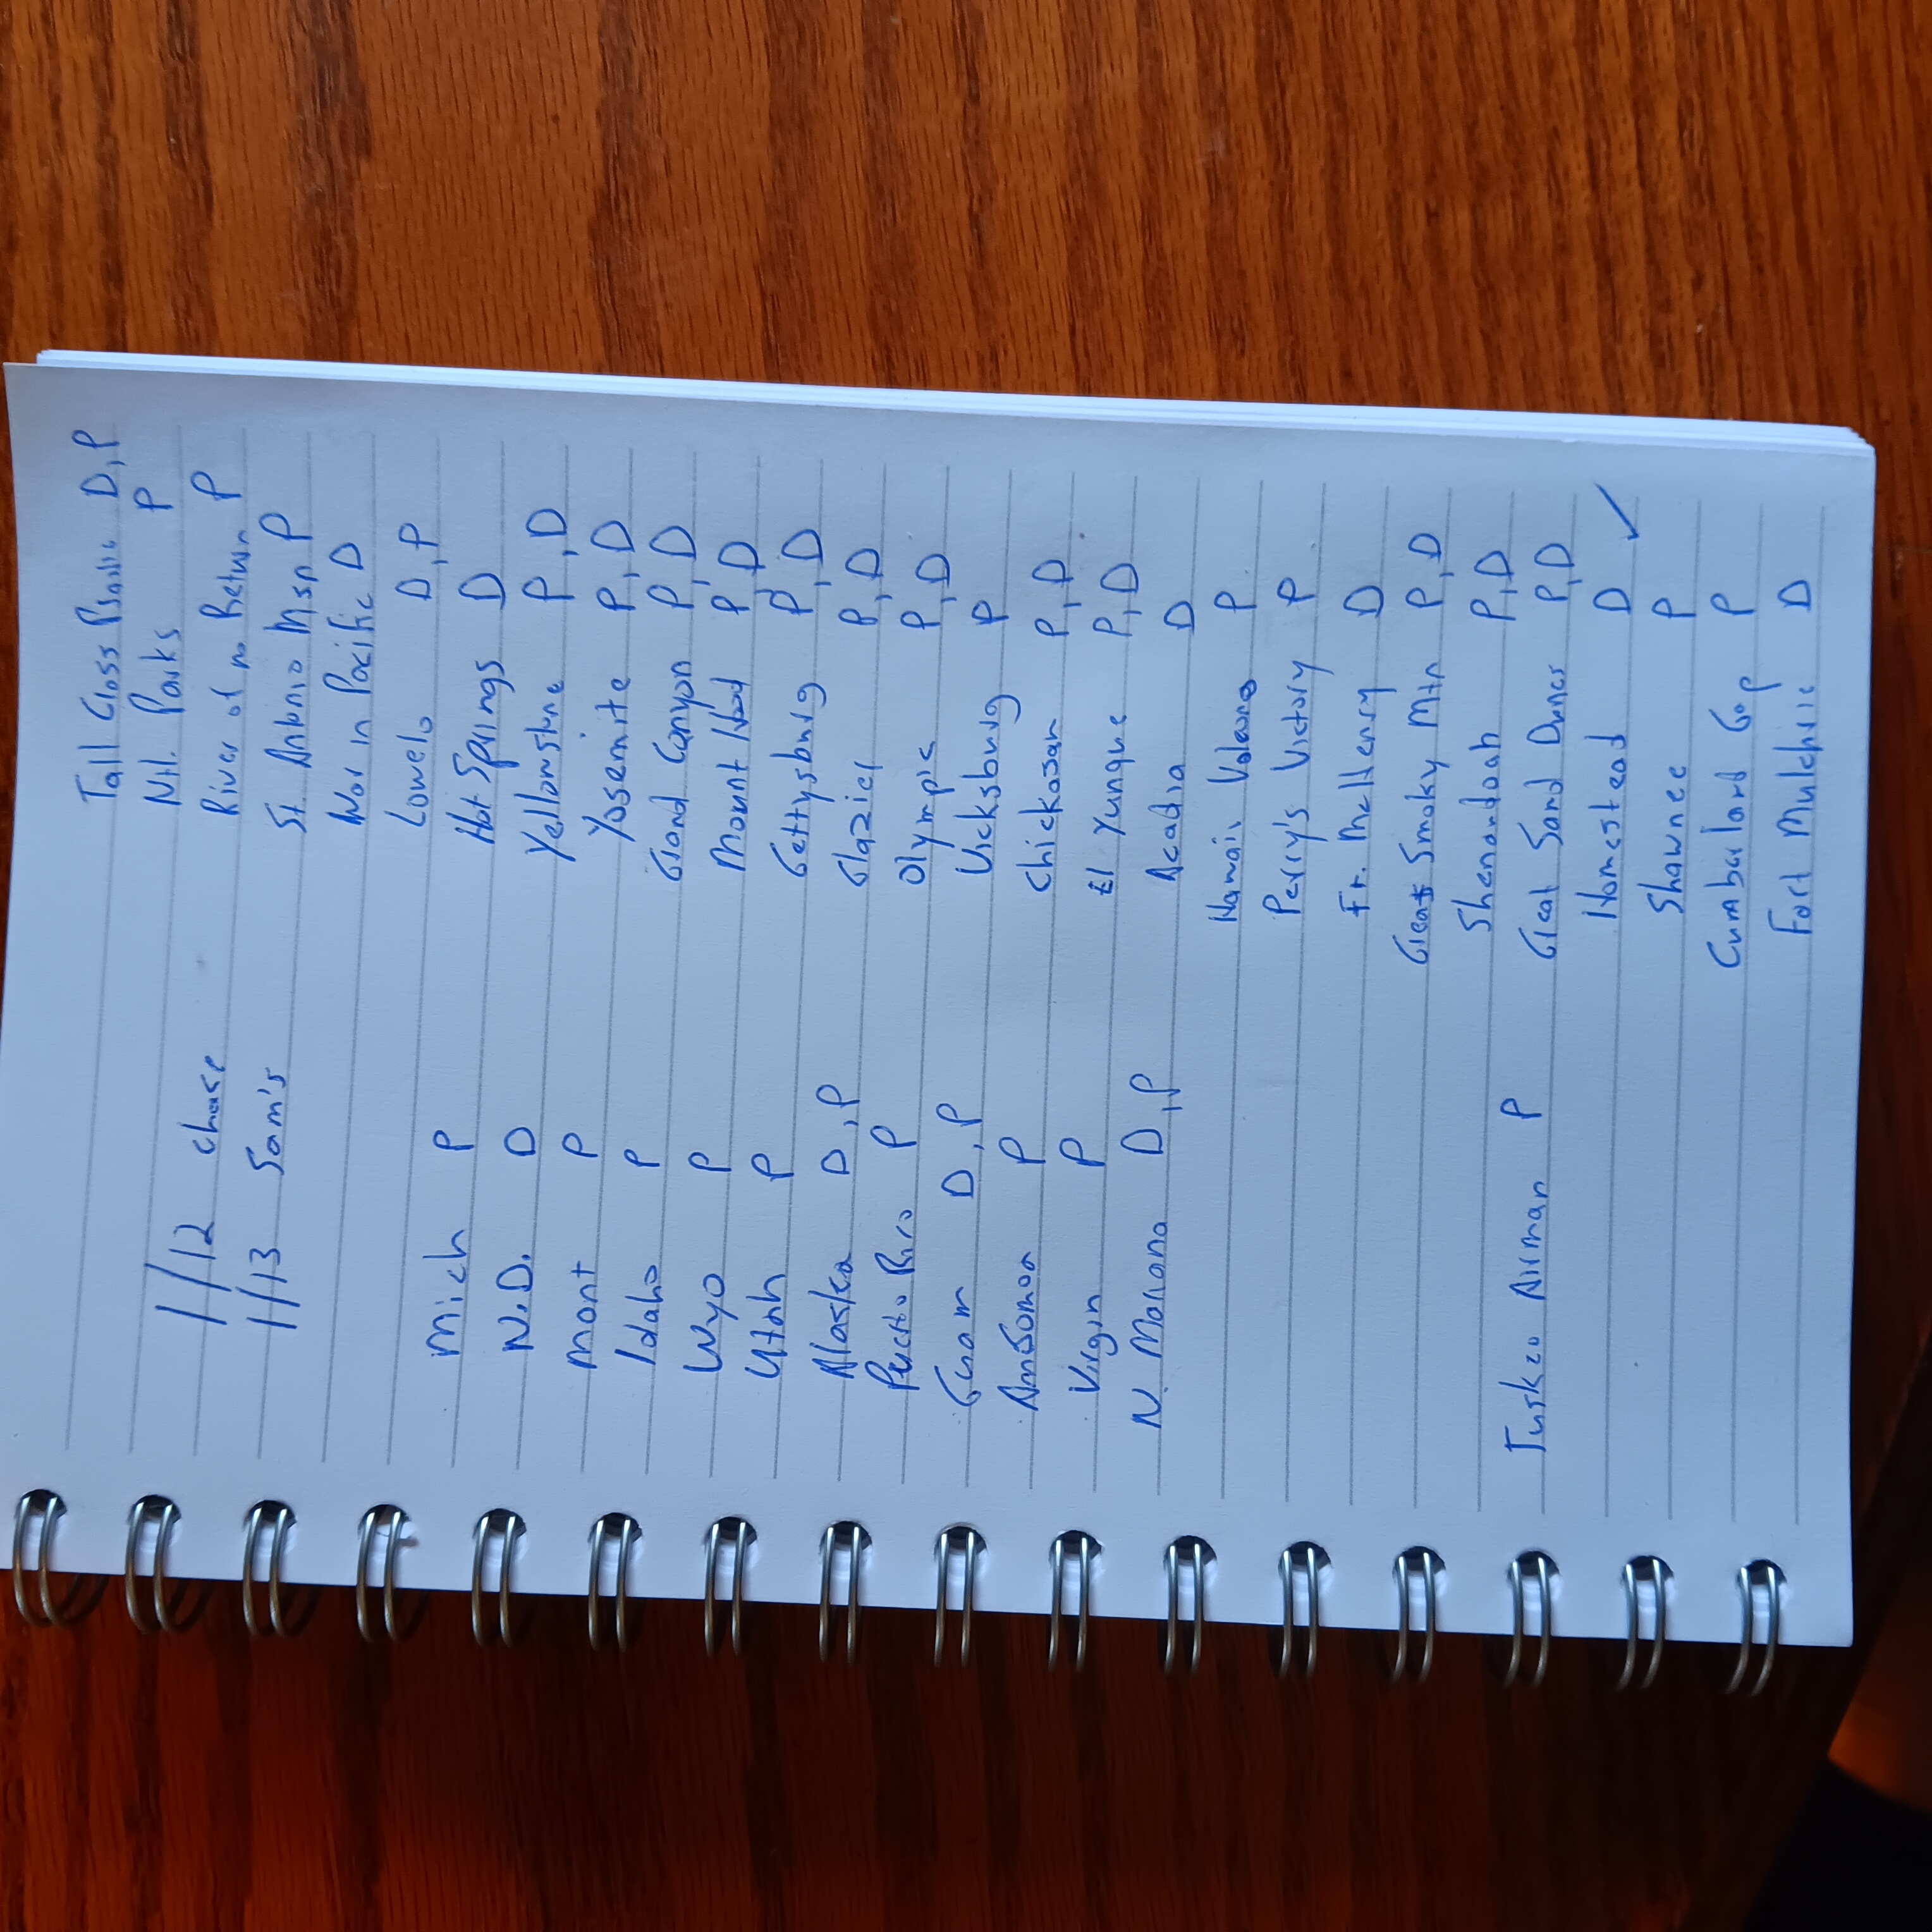 1/12 chase
1/13 Sam's
Mich P
N.D. D
Mont P
Idaho P
Wyo P
Utah P
Alaska D, P
Puerto Rico P
Guam D, P
AmSamoa P
Virgin P
N. Mariana D, P
Tuskeo Airman P
Tall Grass Prairie D, P
Ntl. Parks P
River of no Return P
St. Antonio Msn P
War in Pacific D
Lowelo D, P
Hot Springs D
Yellowstone P, D
Yosemite P, D
Grand Canyon P, D
Mount Hood P, D
Gettysburg P, D
Glazier P, D
Olympic P, D
Vicksburg P
Chickasaw P, D
El Yunque P, D
Acadia D
Hawaii Volcano P
Perry's Victory P
Ft. McHenry D
Great Smoky Mtn P, D
Shenandoah P, D
Great Sand Dunes P, D
Homestead D ✓
Shawnee P
Cumberland Gap P
Fort Mulchrie D